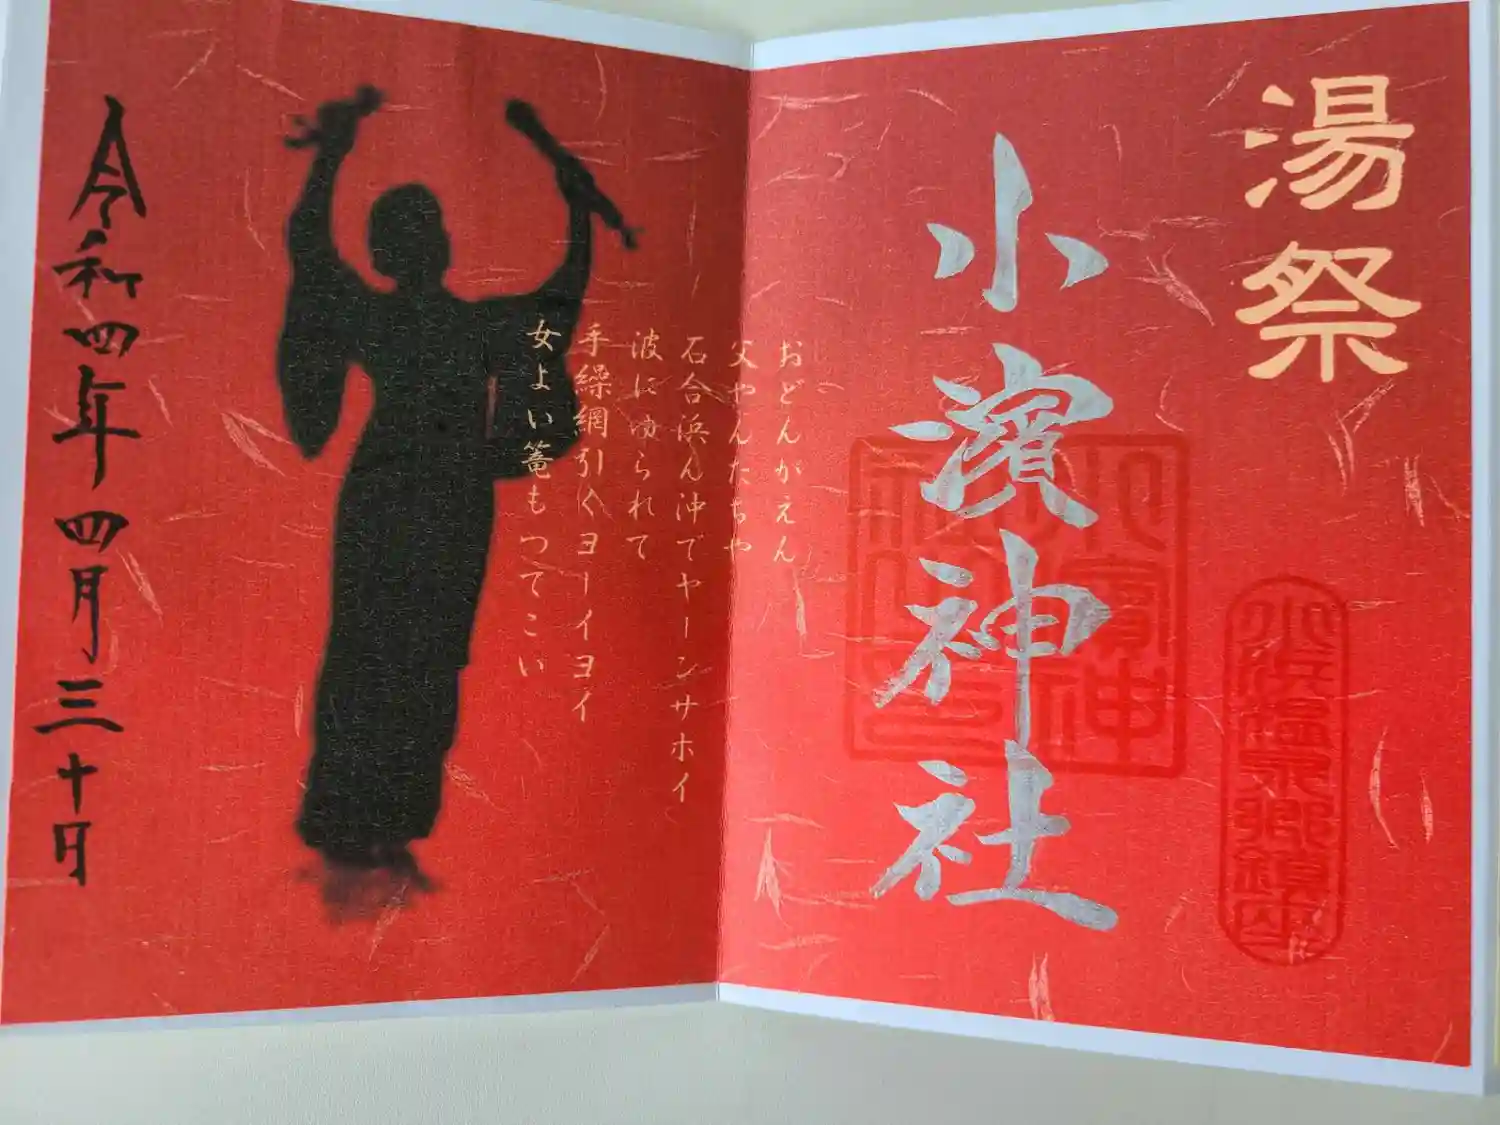 湯祭
小濱神社
小浜温泉郷鎮座
おどんがえん
父やんたちや
石合浜ん沖でヤーンサホイ
波にゆられて
手繰網引くヨーイヨイ
女よい篭もつてこい
令和四年四月三十日